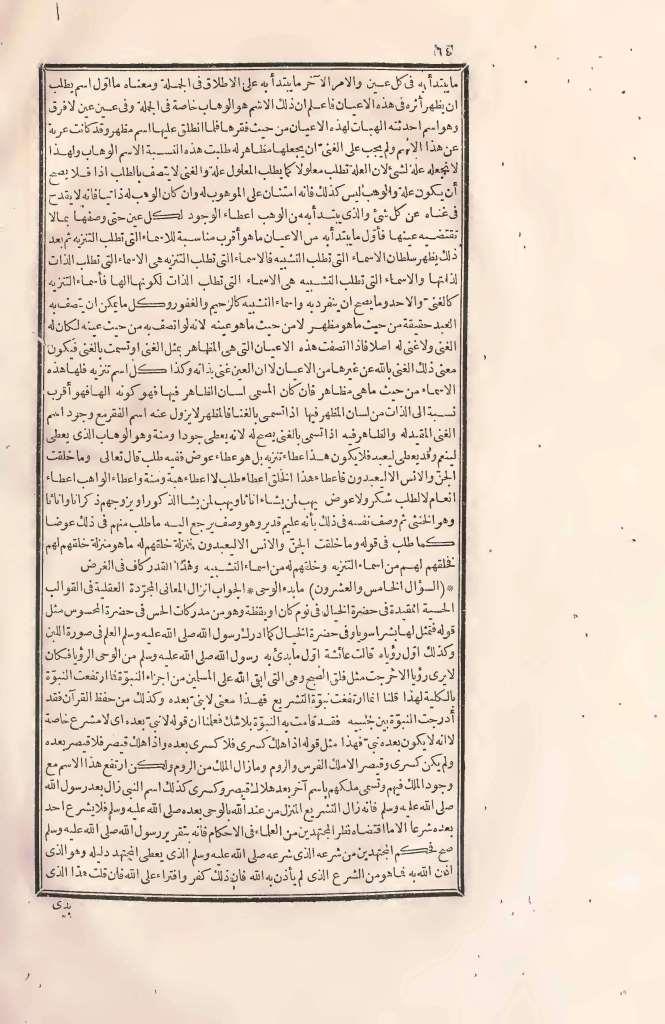 ٦٤
ما يبتدأ به فى كل عين والامر الآخر ما يبتدأ به على الاطلاق فى الجملة ومعناه ما اول اسم يطلب
ان يظهر أثره فى هذه الاعيان فاعلم ان ذلك الاسم هو الوهاب خاصة فى الجملة وفى عين عين لا فرق
وهو اسم احدثته الهبات لهذه الاعيان من حيث فقرها فلما انطلق عليها اسم مظهر وقد كانت عرية
عن هذا الاسم ولم يجب على الغنى ان يجعلها مظاهر له طلبت هذه النسبة الاسم الوهاب ولهذا
لا نجعله علة لشئ لان العلة تطلب معلولا كما يطلب المعلول علة والغنى لا يتصف بالطلب اذا فلا يصح
أن يكون علة والوهب ليس كذلك فانه امتنان على الموهوب له وان كان الوهب له ذاتيا فانه لا يقدح
فى غناه عن كل شئ والذى يبتدأ به من الوهب اعطاء الوجود لكل عين حتى وصفها بما لا
تقتضيه عينها فأول ما يبتدأ به من الاعيان ما هو أقرب مناسبة للاسماء التى تطلب التنزيه ثم بعد
ذلك يظهر سلطان الاسماء التى تطلب التشبيه فالاسماء التى تطلب التنزيه هى الاسماء التى تطلب الذات
لذاتها والاسماء التى تطلب التشبيه هى الاسماء التى تطلب الذات لكونها الها فأسماء التنزيه
كالغنى والاحد وما يصح ان ينفرد به واسماء التشبيه كالرحيم والغفور وكل ما يمكن ان يتصف به
العبد حقيقة من حيث ما هو مظهر لا من حيث ما هو عينه لانه لو اتصف به من حيث عينه لكان له
الغنى ولا غنى له اصلا فاذا اتصفت هذه الاعيان التى هى المظاهر بمثل الغنى او تسمت بالغنى فيكون
معنى ذلك الغنى بالله عن غيرها من الاعيان لا ان العين غنى بذاته وكذا كل اسم تنزيه فلها هذه
الاسماء من حيث ما هى مظاهر فان كان المسمى لسان الظاهر فيها فهو كونه الها فهو أقرب
نسبة الى الذات من لسان المظهر فيها اذا تسمى بالغنا فالمظهر لا يزول عنه اسم الفقر مع وجود اسم
الغنى المقيد له والظاهر فيه اذا تسمى بالغنى يصح له لانه يعطى جودا ومنة وهو الوهاب الذى يعطى
لينعم وقد يعطى ليعبد فلا يكون هذا اعطاء تنزيه بل هو عطاء عوض ففيه طلب قال تعالى وما خلقت
الجن والانس الا ليعبدون فاعطاء هذا الخلق اعطاء طلب لا اعطاء هبة ومنة واعطاء الواهب اعطاء
انعام لا لطلب شكر ولا عوض يهب لمن يشاء اناثا ويهب لمن يشا الذكور او يزوجهم ذكرانا واناثا
وهو الخنثى ثم وصف نفسه فى ذلك بأنه عليم قدير وهو وصف يرجع اليه ما طلب منهم فى ذلك عوضا
كما طلب فى قوله وما خلقت الجن والانس الا ليعبدون فمنزلة خلقهم له ما هو منزلة خلقهم لهم
فخلقهم لهم من اسماء التنزيه وخلقهم له من اسماء التشبيه وهذا القدر كاف فى الغرض
* (السؤال الخامس والعشرون) ما بدء الوحى * الجواب انزال المعانى المجردة العقلية فى القوالب
الحسية المقيدة فى حضرة الخيال فى نوم كان او يقظة وهو من مدركات الحس فى حضرة المحسوس مثل
قوله فتمثل لها بشرا سويا وفى حضرة الخيال كما ادرك رسول الله صلى الله عليه وسلم العلم فى صورة اللبن
وكذلك اول رؤياه قالت عائشة اول ما بدئ به رسول الله صلى الله عليه وسلم من الوحى الرؤيا فكان
لا يرى رؤيا الا خرجت مثل فلق الصبح وهى التى ابقى الله على المسلمين من اجزاء النبوة فما ارتفعت النبوة
بالكلية لهذا قلنا انما ارتفعت نبوة التشريع فهذا معنى لا نبى بعده وكذلك من حفظ القرآن فقد
أدرجت النبوة بين جنبيه فقد قامت به النبوة بلا شك فعلمنا ان قوله لا نبى بعده اى لا مشرع خاصة
لا انه لا يكون بعده نبى فهذا مثل قوله اذا هلك كسرى فلا كسرى بعده واذا هلك قيصر فلا قيصر بعده
ولم يكن كسرى وقيصر الا ملك الفرس والروم وما زال الملك من الروم ولكن ارتفع هذا الاسم مع
وجود الملك فيهم وتسمى ملكهم باسم آخر بعد هلاك قيصر وكسرى كذلك اسم النبى زال بعد رسول الله
صلى الله عليه وسلم فانه زال التشريع المنزل من عند الله بالوحى بعده صلى الله عليه وسلم فلا يشرع احد
بعده شرعا الا ما اقتضاه نظر المجتهدين من العلماء فى الاحكام فانه بتقرير رسول الله صلى الله عليه وسلم
صح فحكم المجتهدين من شرعه الذى شرعه صلى الله عليه وسلم الذى يعطى المجتهد دليله وهو الذى
اذن الله به فما هو من الشرع الذى لم يأذن به الله فان ذلك كفر وافتراء على الله فان قلت هذا الذى